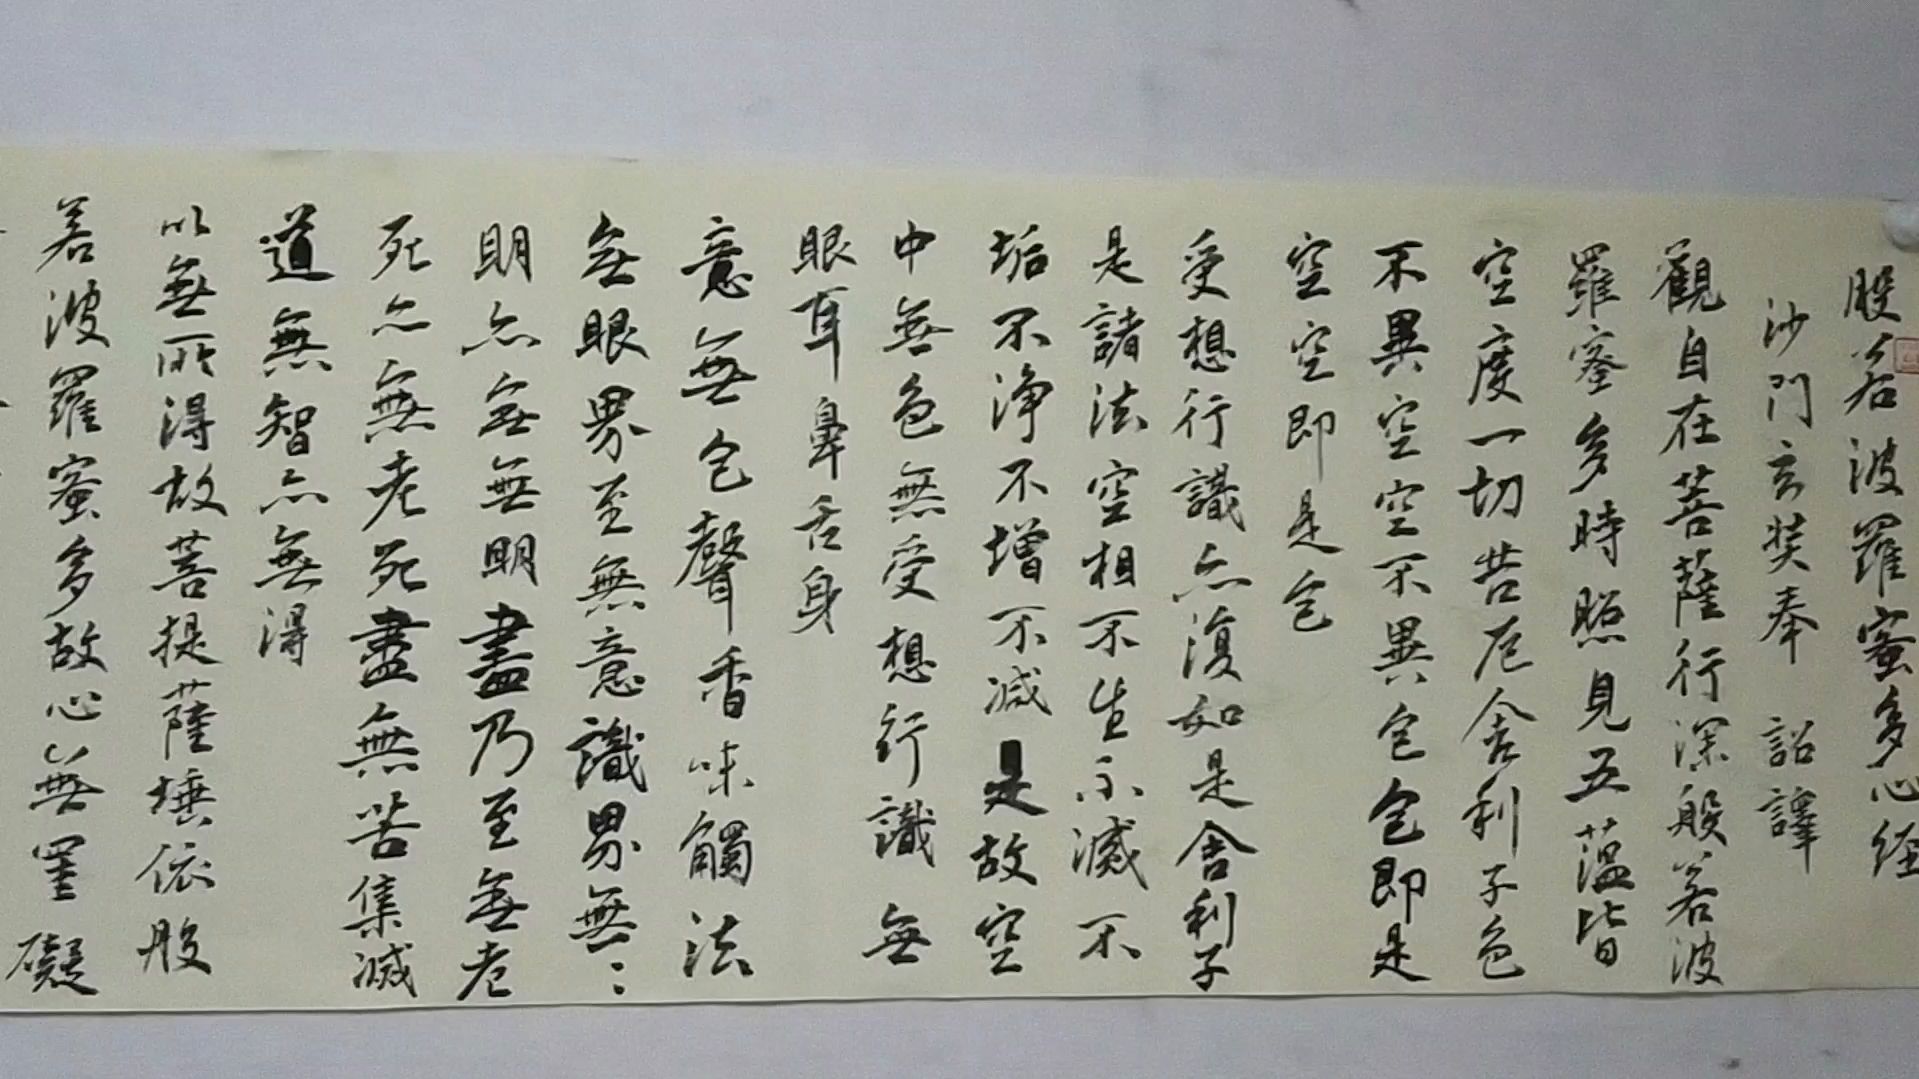 般若波羅蜜多心経
沙門玄奘奉 詔譯
觀自在菩薩行深般若波
羅蜜多時照見五藴皆
空度一切苦厄舍利子色
不異空空不異色色即是
空空即是色
受想行識亦復如是舍利子
是諸法空相不生不滅不
垢不浄不增不減是故空
中無色無受想行識無
眼耳鼻舌身
意無色聲香味觸法
無眼界至無意識界無〻
明亦無無明盡乃至無老
死亦無老死盡無苦集滅
道無智亦無得
以無所得故菩提薩埵依般
若波羅蜜多故心無罣礙